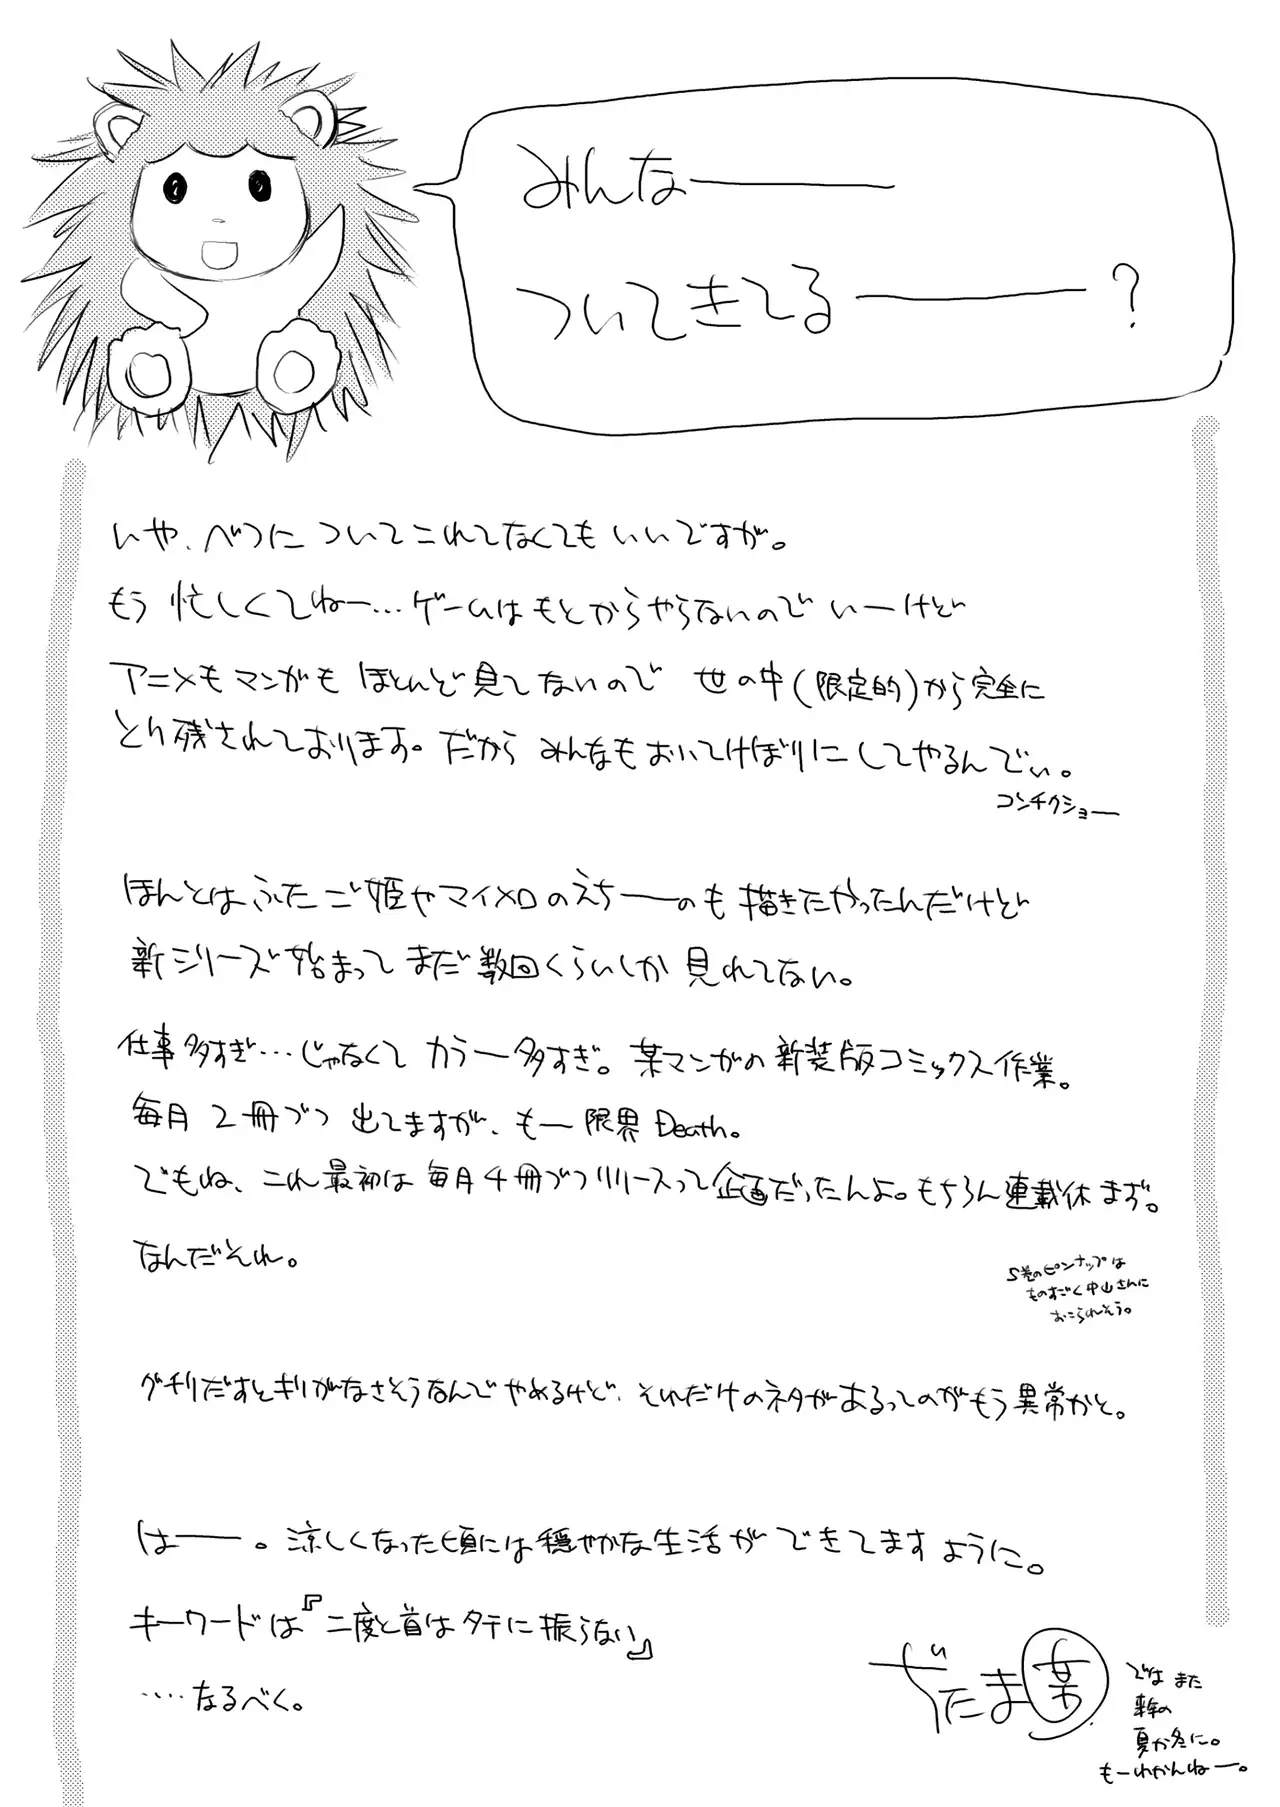 みんなーーー
ついてきてるーーー?
いや、べつについてこれてなくてもいいですが。
もう忙しくてねー…ゲームはもとからやらないのでいーけど
アニメもマンガもほとんど見てないので 世の中(限定的)から完全に
とり残されております。だからみんなもおいてけぼりにしてやるんでぃ。
コンチクショー
ほんとはふたご姫やマイメロのえちーのも描きたかったんだけど
新シリーズ始まってまだ数回くらいしか見れてない。
仕事多すぎ…じゃなくてカラー多すぎ。某マンガの新装版コミックス作業。
毎月2冊づつ出てますが、もー限界Death。
でもね、これ最初は毎月4冊づつリリースって企画だったんよ。もちろん連載休まず。
なんだそれ。
5巻のピンナップは
ものすごく中山さんに
おこられそう。
グチりだすとキリがなさそうなんでやめるけど、それだけのネタがあるってのがもう異常かと。
はーー。涼しくなった頃には穏やかな生活ができてますように。
キーワードは『二度と首はタテに振らない』
‥‥なるべく。
ぢたま(某)
ではまた
来年の
夏か冬に。
もーわかんねー。